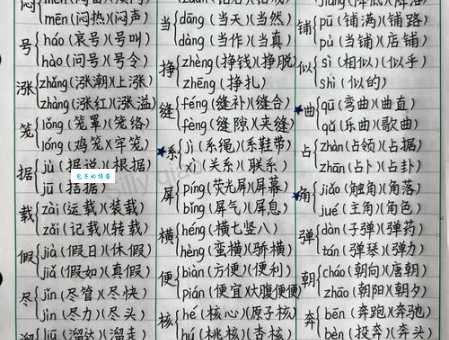 闷
mēn(闷热)(闷声)
号
háo(哀号)(号叫)
hào(问号)(号令)
涨
zhǎng(涨潮)(上涨)
zhàng(涨红)(涨溢)
笼
lǒng(笼罩)(笼络)
lóng(鸡笼)(牢笼)
据
jù(据说)(根据)
jū(拮据)
载
zài(运载)(装载)
zǎi(记载)(转载)
假
jià(假日)(休假)
jiǎ(假如)(真假)
尽
jǐn(尽管)(尽快)
jìn(尽力)(尽头)
溜
liū(溜达)(溜走)
当
dāng(当天)(当然)
dàng(当作)(当真)
挣
zhèng(挣钱)(挣脱)
zhēng(挣扎)
缝
féng(缝补)(缝合)
fèng(缝隙)(夹缝)
系
jì(系绳)(系鞋带)
xì(关系)(联系)
屏
píng(荧光屏)(屏幕)
bǐng(屏气)(屏息)
横
héng(横七竖八)
hèng(蛮横)(骄横)
便
biàn(方便)(便利)
pián(便宜)(大腹便便)
核
hé(核心)(原子核)
hú(桃核)(杏核)
铺
pū(铺满)(铺路)
pù(当铺)(店铺)
似
sì(相似)(似乎)
shì(似的)
曲
qū(弯曲)(曲直)
qǔ(乐曲)(歌曲)
占
zhàn(占领)(占据)
zhān(占卜)(占卦)
角
jiǎo(触角)(角落)
jué(主角)(角色)
弹
dàn(子弹)(弹药)
tán(弹琴)(弹力)
朝
cháo(朝向)(唐朝)
zhāo(朝阳)(朝夕)
奔
bēn(奔跑)(奔驰)
bèn(投奔)(奔头)